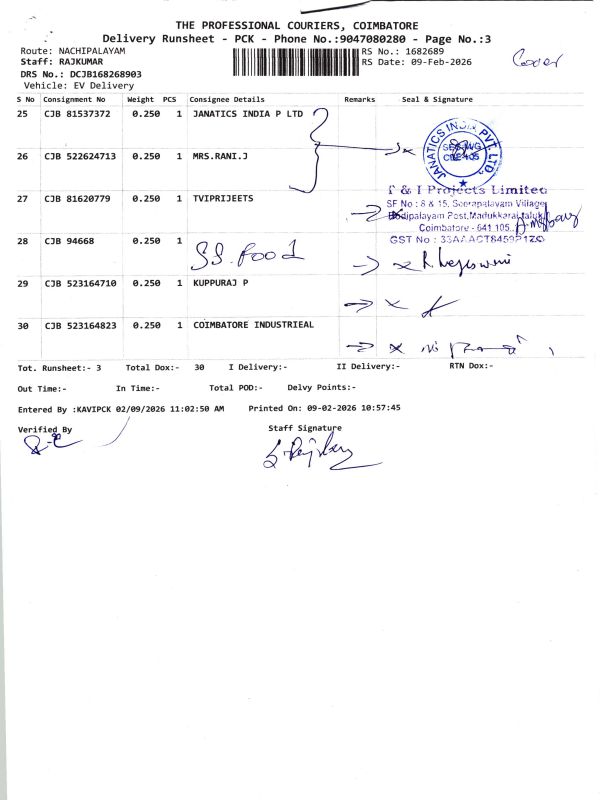 THE PROFESSIONAL COURIERS, COIMBATORE
Delivery Runsheet - PCK - Phone No.:9047080280 - Page No.:3
Route: NACHIPALAYAM
RS No.: 1682689
Staff: RAJKUMAR
RS Date: 09-Feb-2026
Cover
DRS No.: DCJB168268903
Vehicle: EV Delivery
S No Consignment No Weight PCS Consignee Details Remarks Seal & Signature
25 CJB 81537372 0.250 1 JANATICS INDIA P LTD
JANATICS INDIA PVT LTD.
26 CJB 522624713 0.250 1 MRS.RANI.J
27 CJB 81620779 0.250 1 TVIPRIJEETS
T & I Projects Limited
SF No : 8 & 15, Seerapalayam Village
Bodipalayam Post, Madukkarai Taluk
Coimbatore - 641 105.
GST No : 33AAACT8459P1ZO
28 CJB 94668 0.250 1 SS. Food
29 CJB 523164710 0.250 1 KUPPURAJ P
30 CJB 523164823 0.250 1 COIMBATORE INDUSTRIEAL
Tot. Runsheet:- 3 Total Dox:- 30 I Delivery:- II Delivery:- RTN Dox:-
Out Time:- In Time:- Total POD:- Delvy Points:-
Entered By :KAVIPCK 02/09/2026 11:02:50 AM Printed On: 09-02-2026 10:57:45
Verified By Staff Signature